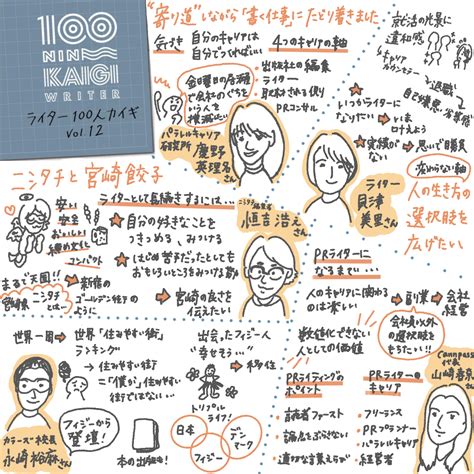 100
NIN
KAIGI
WRITER
ライター100人カイギ
vol.12
"寄り道"しながら「書く仕事」にたどり着きました
気づき
自分のキャリアは
自分でつくればいい
金曜日の居酒屋
で会社のぐちを
いう人を
撲滅したい
パラレルキャリア
研究所
慶野
英里名
さん
4つのキャリアの軸
・出版社の編集
・ライター
・取材される側
・PRコンサル
就活の光景に
違和感
キャリア
カウンセラー
→退職
いつかライターに
なりたい
いま
叶えよう
実績が
ない
→思いで勝負
変わらない軸
人の生き方の
選択肢を
広げたい
ライター
貝津
美里さん
ニシタチと宮崎餃子
安い
安全
おいしい
コンパクト
まるで天国!!
ニシタチ
とは
→新宿の
ゴールデン街の
ように
ライターとして意識するには…
自分の好きなことを
きつめる、みつける
はじめ苦手だったとしても
おもしろいところをみつける
→宮崎の良さを
伝えたい
恒吉浩之
さん
PRライターに
なるまで…
人のキャリアに関わる
のは楽しい
→副業→会社
経営
会社員以外
の選択肢を
もちたい!!
数値化できない
人としての価値
PRライティングの
ポイント
読者ファースト
論点をぶらさない
PRライターの
キャリア
・フリーランス
・PRプランナー
・パラレルキャリア
・経営者
代表
山崎春奈
さん
世界一周→世界「住みやすい街」
ランキング
→住みやすい街
=「僕が」住みやすい
街ではない…
フィジーから
登壇!
カラーズ校長
永崎裕麻
さん
出会ったフィジー人
"幸せそう…"
→移住
本の出版も!
トリプル
ライフ!
日本
フィジー
デンマーク